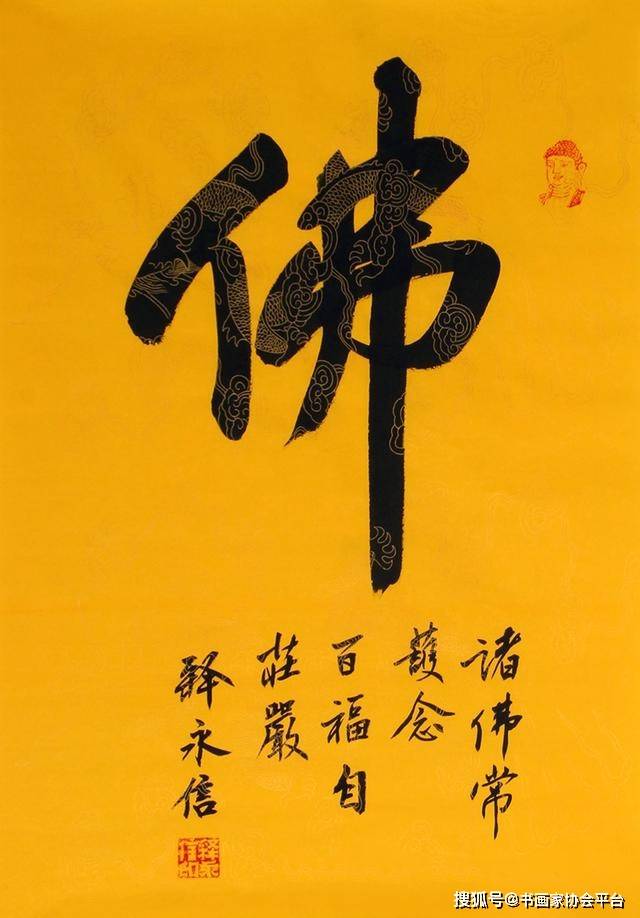 佛
諸佛常
護念
百福自
莊嚴
釋永信
搜狐号@书画家协会平台